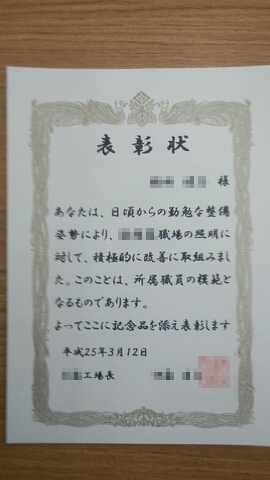 表彰状
様
あなたは、日頃からの勤勉な整備
姿勢により、職場の照明に
対して、積極的に改善に取組みまし
た。このことは、所属職員の模範と
なるものであります。
よってここに記念品を添え表彰します
平成25年3月12日
工場長